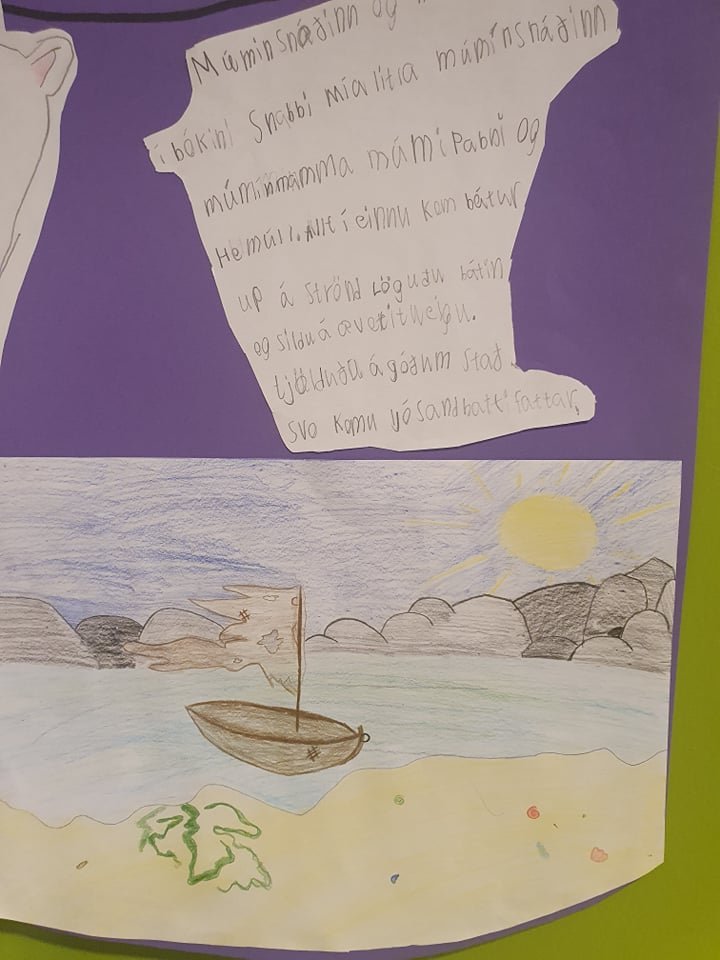 Múmínsnáðinn og
í bókini Snabbi mía litla múmínsnáðinn
múmínmamma múmí Pabbi og
Hemúli. Allt í einnu kom bátur
up á strönd Löguðu bátin
og sildu á
tjölduðu á góðum stað
svo komu